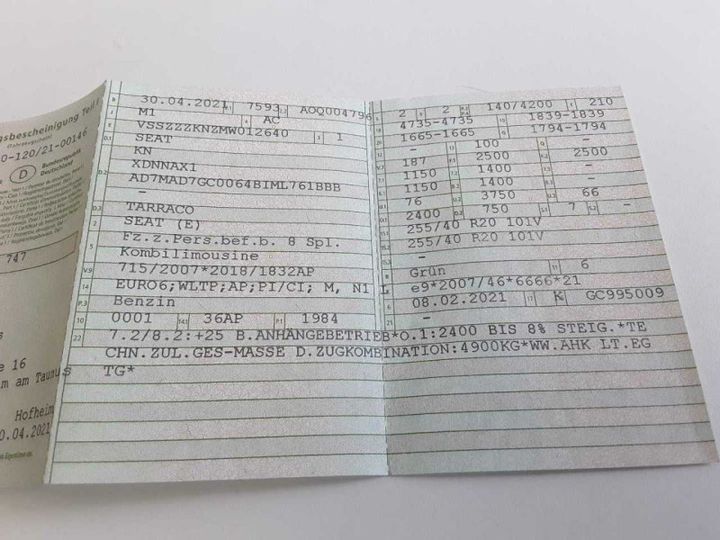 gsbescheinigung Teil I
(Fahrzeugschein)
0-120/21-00146
D
Bundesrepublik
Deutschland
747
e 16
m am Taunus
Hofheim
0.04.2021
B 30.04.2021 7593 AOQ004796
J M1 4 AC
E VSSZZZKNZMW012640 3 1
D.1 SEAT
KN
XDNNAX1
AD7MAD7GC0064BIML761BBB
-
D.3 TARRACO
2 SEAT (E)
5 Fz.z.Pers.bef.b. 8 Spl.
Kombilimousine
V.9 715/2007*2018/1832AP
14 EURO6;WLTP;AP;PI/CI; M, NI L
P.3 Benzin
10 0001 14.1 36AP P.1 1984
22 7.2/8.2:+25 B.ANHÄNGEBETRIEB*O.1:2400 BIS 8% STEIG.*TE
CHN.ZUL.GES-MASSE D.ZUGKOMBINATION:4900KG*WW.AHK LT.EG
TG*
2 2 140/4200 210
4735-4735 1839-1839
1665-1665 1794-1794
- 100 -
187 2500 2500
1150 1400 -
1150 1400 -
76 3750 66
2400 750 7 -
255/40 R20 101V
255/40 R20 101V
-
Grün 11 6
e9*2007/46*6666*21
08.02.2021 17 K GC995009
-